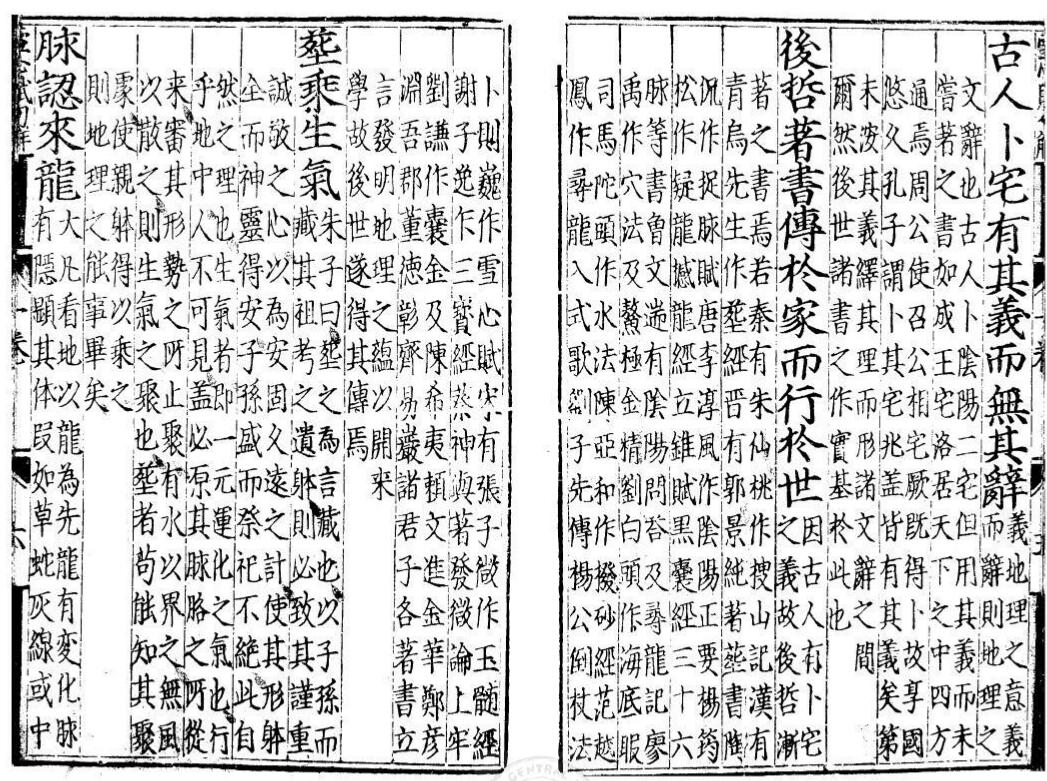 古人卜宅有其義而無其辭義地理之意義
而辭則地理之
文辭也古人卜陰陽二宅但用其義而未
嘗著之書如成王宅洛居天下之中四方
通焉周公使召公相宅厥既得卜故享國
悠久孔子謂卜其宅兆蓋皆有其義矣第
未浚其義繹其理而形諸文辭之間
爾然後世諸書之作實基於此也
後哲著書傳於家而行於世因古人有卜宅
之義故後哲漸
著之書焉若秦有朱仙桃作搜山記漢有
青烏先生作葬經晉有郭景純著葬書隋
況作捉脉賦唐李淳風作陰陽正要楊筠
松作疑龍撼龍經立錐賦黑囊經三十六
脉等書曽文遄有陰陽問答及尋龍記廖
禹作穴法及鰲極金精劉白頭作海底眼
司馬陀頭作水法陳亞和作撥砂經范越
鳳作尋龍入式歌劉子先傳楊公倒杖法
卜則巍作雪心賦宋有張子微作玉髓經
謝子逸作三寶經蔡神與著發微論上牢
劉謙作囊金及陳希夷頼文進金華鄭彦
淵吾郡董徳彰齊易巖諸君子各著書立
言發明地理之蘊以開来
學故後世遂得其傳焉
葬乘生氣朱子曰葬之為言藏也以子孫而
藏其祖考之遺躰則必致其謹重
誠敬之心以為安固久遠之計使其形躰
全而神靈得安子孫盛而祭祀不絶此自
然之理也生氣者即一元運化之氣也行
乎地中人不可見盖必原其脉胳之所從
来審其形勢之所止聚有水以界之無風
以散之則生氣之聚也葬者苟能知其聚
處使親躰得以乘之
則地理之能事畢矣
脉認來龍大凡看地以龍為先龍有変化脉
有隱顯其体段如草蛇灰線或中